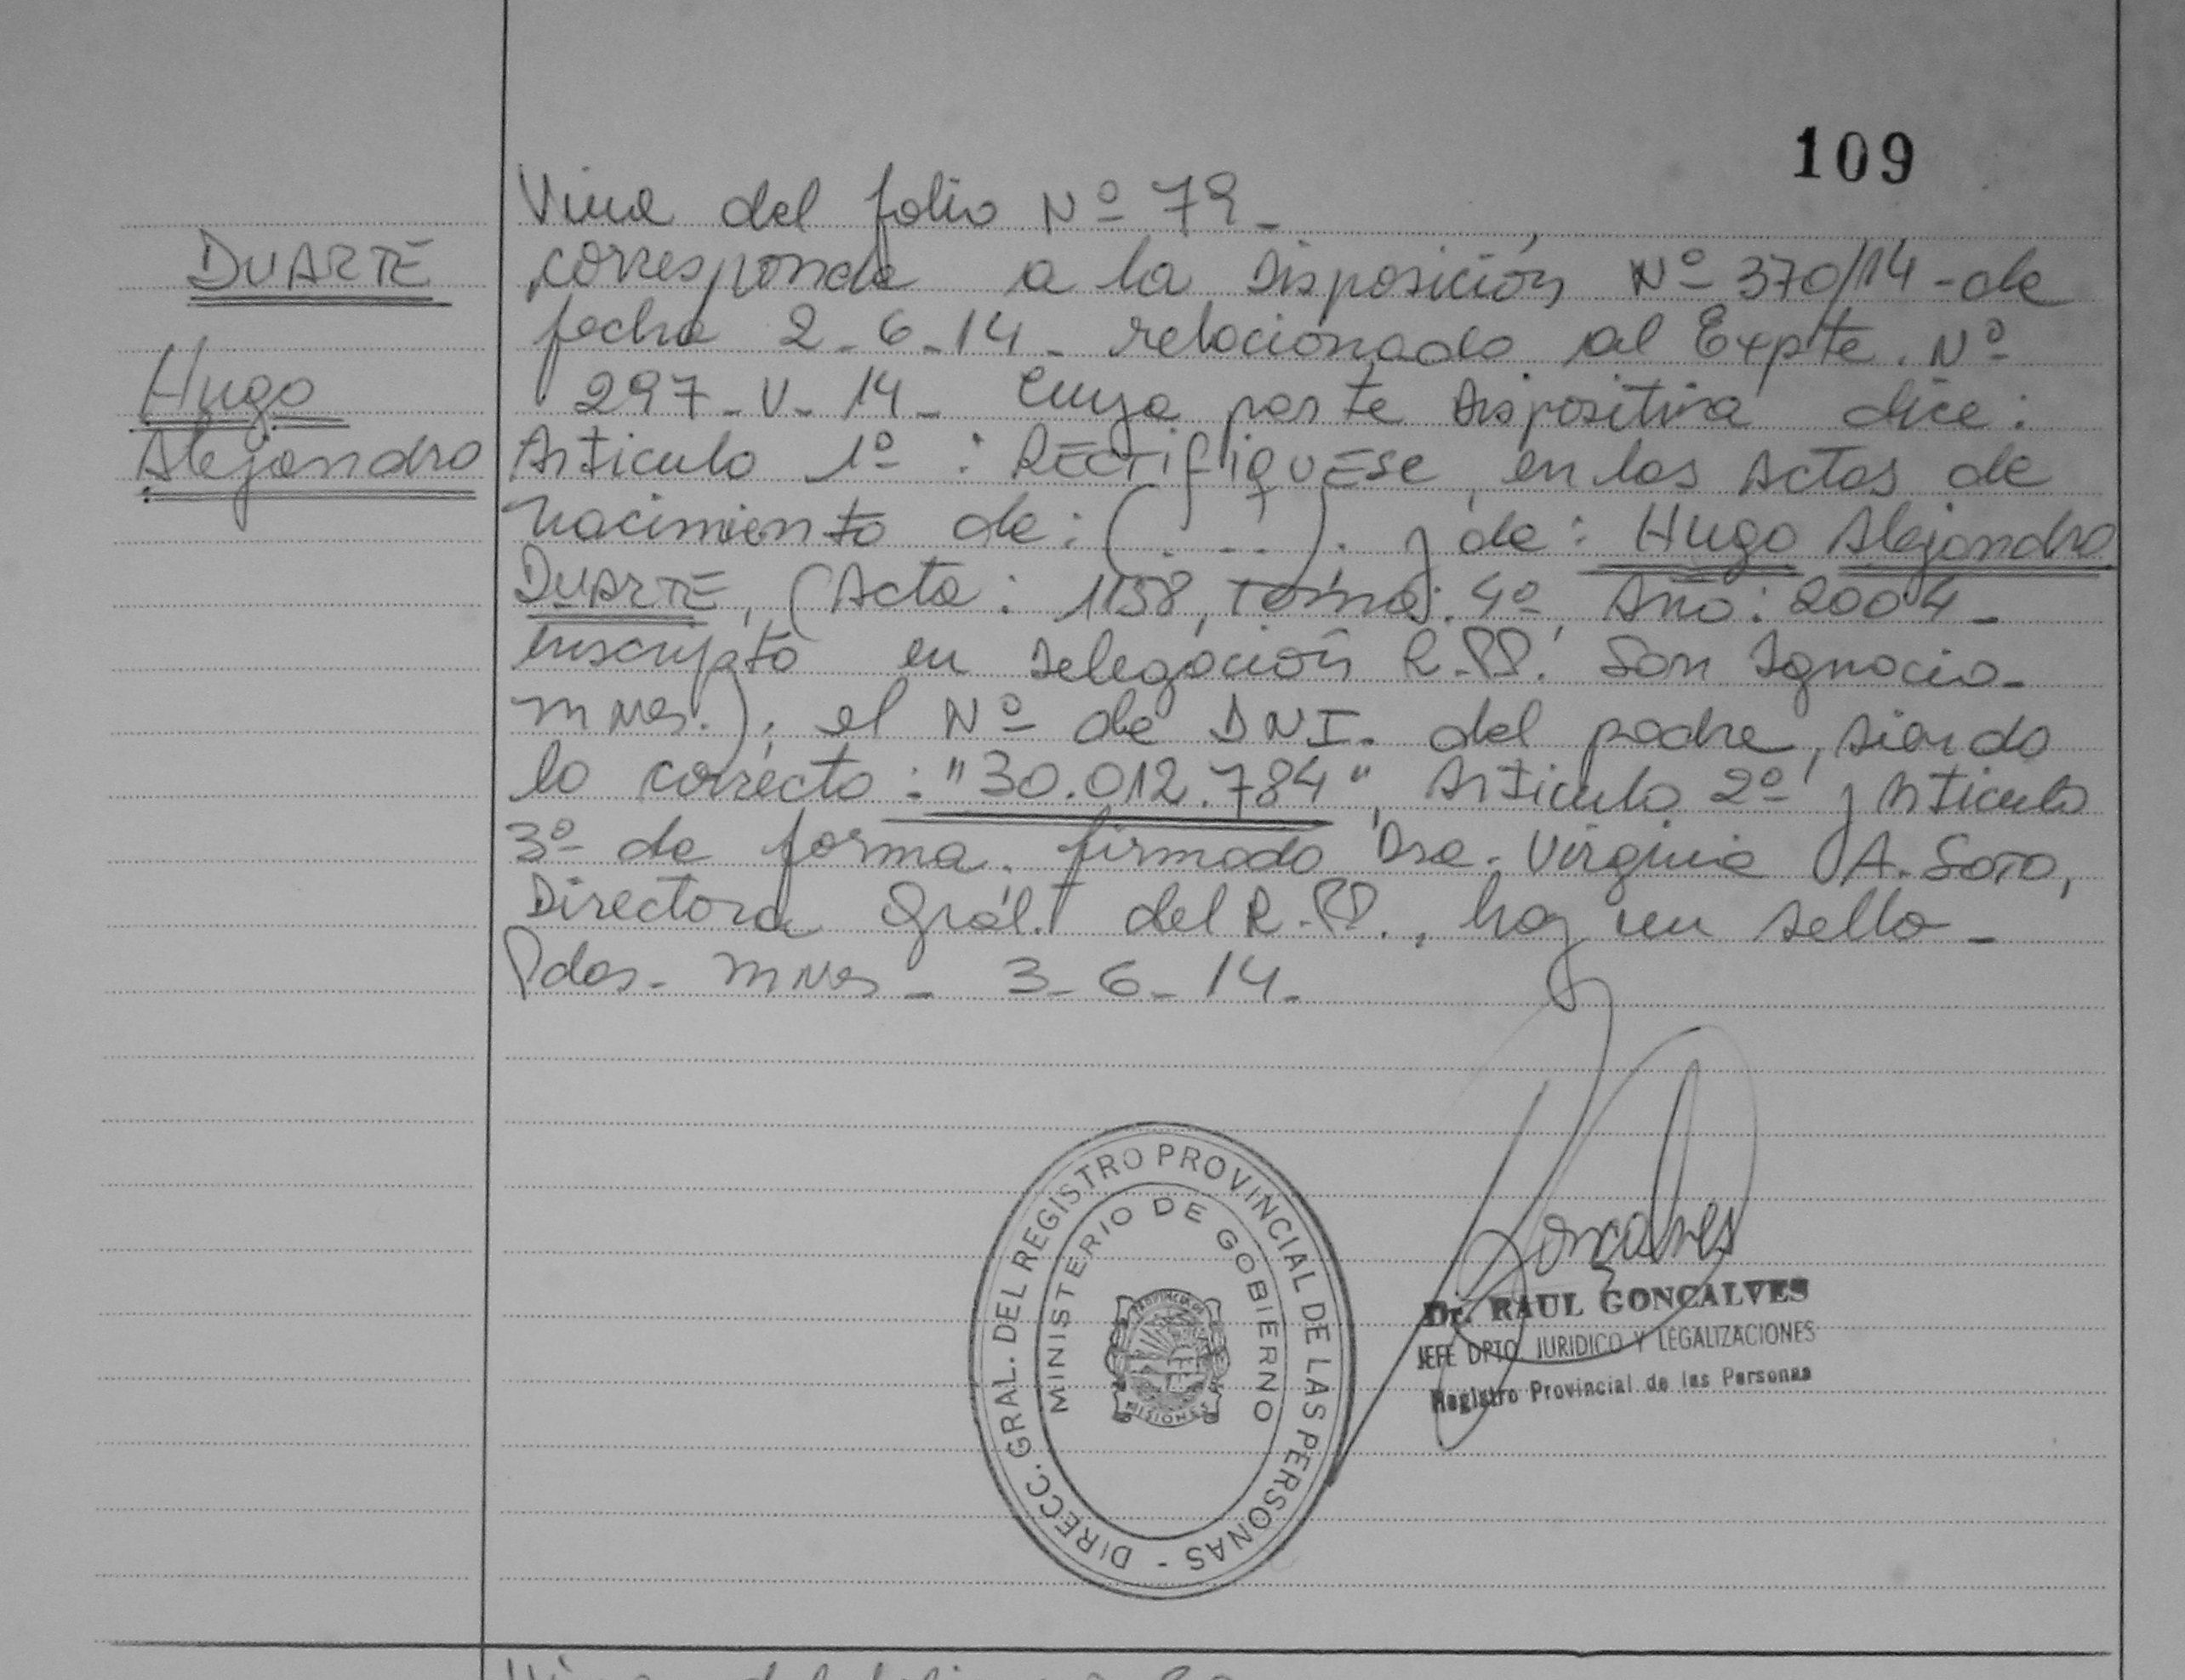 109
Viene del folio Nº 79-
DUARTE
Hugo
Alejandro
corresponde a la Disposición Nº 370/14 - de
fecha 2-6-14- relacionado al Expte. Nº
297-V-14- Cuya parte dispositiva dice:
Articulo 1º: RECTIFIQUESE, en las Actas de
nacimiento de: (....). y de: Hugo Alejandro
DUARTE, (Acta: 1158, Tomo: 4º, Año: 2004-
inscripto en Delegación R.PP. San Ignacio-
Mnes.); el Nº de DNI. del padre, siendo
lo correcto: "30.012.784", Articulo 2º y Articulo
3º de forma. firmado Dra. Virginia A. Soto,
Directora Gral. del R.PP., hay un sello-
Pdas- Mnes- 3-6-14-
DIRECC. GRAL. DEL REGISTRO PROVINCIAL DE LAS PERSONAS -
MINISTERIO DE GOBIERNO
PROVINCIA DE
MISIONES
Gonçalves
Dr. RAUL GONCALVES
JEFE DPTO JURIDICO Y LEGALIZACIONES
Registro Provincial de las Personas